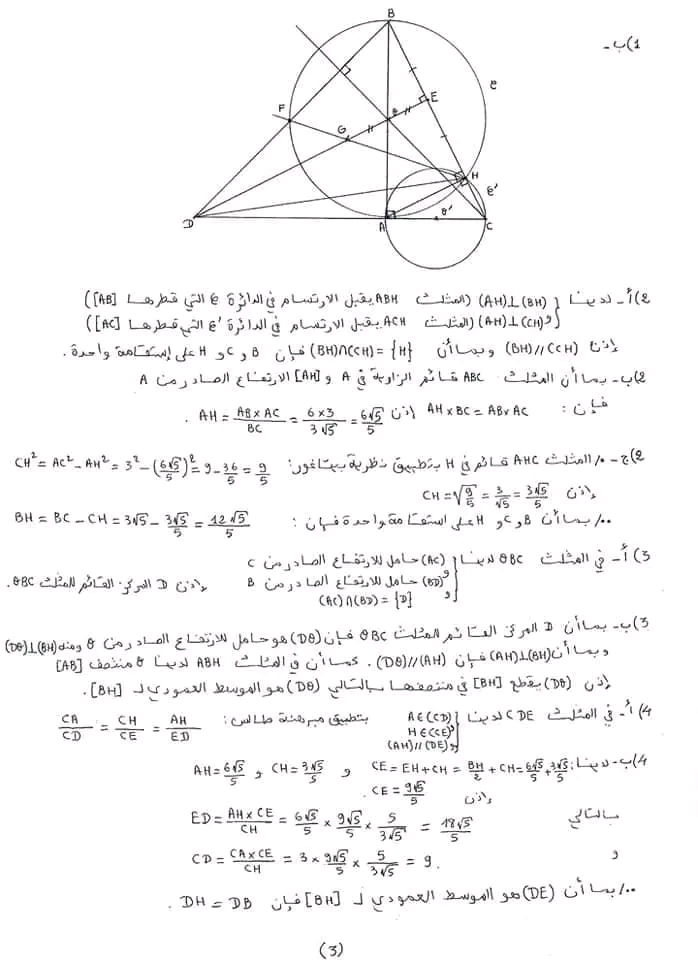 1)ب-
B
F
E
G
θ
H
D
A
θ'
C
𝒞
𝒞'
2)أ- لدينا { (AH)⊥(BH) (المثلث ABH يقبل الارتسام في الدائرة 𝒞 التي قطرها [AB])
و (AH)⊥(CH) (المثلث ACH يقبل الارتسام في الدائرة 𝒞' التي قطرها [AC])
إذن (BH)//(CH) وبما أن (BH)∩(CH)={H} فإن B و C و H على إستقامة واحدة.
2)ب- بما أن المثلث ABC قائم الزاوية في A و [AH] الارتفاع الصادر من A
فإن : AH×BC = AB×AC إذن AH = AB×AC/BC = 6×3/3√5 = 6√5/5 .
2)ج- •/ المثلث AHC قائم في H بتطبيق نظرية بيتاغور: CH² = AC² - AH² = 3² - (6√5/5)² = 9 - 36/5 = 9/5
إذن CH = √9/5 = 3/√5 = 3√5/5
••/ بما أن B و C و H على استقامة واحدة فإن : BH = BC - CH = 3√5 - 3√5/5 = 12√5/5
3)أ- في المثلث θBC لدينا { (AC) حامل للارتفاع الصادر من C
و (BD) حامل للارتفاع الصادر من B
و (AC)∩(BD) = {D}
إذن D المركز القائم للمثلث θBC.
3)ب- بما أن D المركز القائم للمثلث θBC فإن (Dθ) هو حامل للارتفاع الصادر من θ ومنه (Dθ)⊥(BH)
وبما أن (AH)⊥(BH) فإن (Dθ)//(AH). كما أن في المثلث ABH لدينا θ منتصف [AB]
إذن (Dθ) يقطع [BH] في منتصفها بالتالي (Dθ) هو الموسط العمودي لـ [BH].
4)أ- في المثلث CDE لدينا { A∈(CD)
و H∈(CE)
و (AH)//(DE)
بتطبيق مبرهنة طالس : CA/CD = CH/CE = AH/ED
4)ب- لدينا: CE = EH+CH = BH/2 + CH = 6√5/5 + 3√5/5 و CH = 3√5/5 و AH = 6√5/5
إذن CE = 9√5/5 .
بالتالي ED = AH×CE/CH = 6√5/5 × 9√5/5 × 5/3√5 = 18√5/5
و CD = CA×CE/CH = 3 × 9√5/5 × 5/3√5 = 9 .
••/ بما أن (DE) هو الموسط العمودي لـ [BH] فإن DH = DB .
(3)